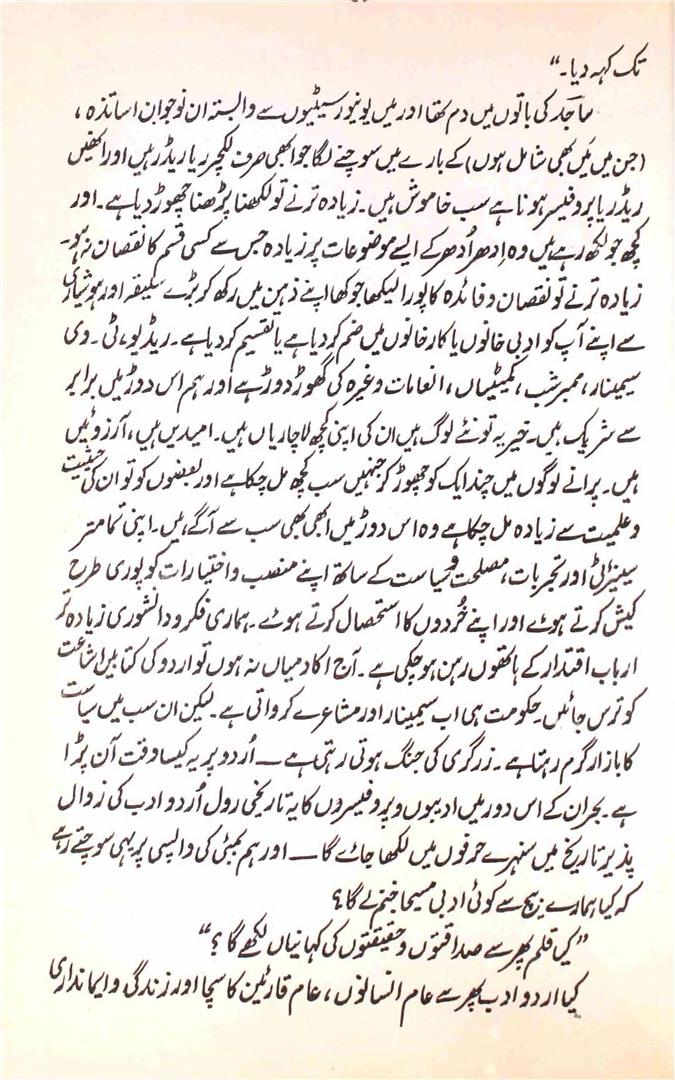 تک کہہ دیا۔"
ماجد کی باتوں میں دم تھا اور میں یونیورسیٹیوں سے وابستہ ان نوجوان اساتذہ،
(جن میں میں بھی شامل ہوں) کے بارے میں سوچنے لگا جو ابھی صرف لکچرر یا ریڈر ہیں اور انھیں
ریڈر یا پروفیسر ہونا ہے سب خاموش ہیں۔ زیادہ تر نے تو لکھنا پڑھنا چھوڑ دیا ہے۔ اور
کچھ جو لکھ رہے ہیں وہ اِدھر اُدھر کے ایسے موضوعات پر زیادہ جس سے کسی قسم کا نقصان نہ ہو۔
زیادہ تر نے تو نقصان و فائدہ کا پورا لیکھا جوکھا اپنے ذہن میں رکھ کر بڑے سلیقہ اور ہوشیاری
سے اپنے آپ کو ادبی خانوں یا کارخانوں میں ضم کر دیا ہے یا تقسیم کر دیا ہے۔ ریڈیو، ٹی۔وی
سیمینار، ممبر شب، کمیٹیاں، انعامات وغیرہ کی گھوڑ دوڑ ہے اور ہم اس دوڑ میں برابر
سے شریک ہیں۔ خیر یہ تو نئے لوگ ہیں ان کی اپنی کچھ لاچاریاں ہیں۔ امیدیں ہیں، آرزوئیں
ہیں۔ پرانے لوگوں میں چند ایک کو چھوڑ کر جنہیں سب کچھ مل چکا ہے اور بعضوں کو تو ان کی حیثیت
و علمیت سے زیادہ مل چکا ہے وہ اس دوڑ میں ابھی بھی سب سے آگے ہیں۔ اپنی تمامتر
سینئرٹی اور تجربات، مصلحت و سیاست کے ساتھ اپنے منصب و اختیارات کو پوری طرح
کیش کرتے ہوئے اور اپنے خُردوں کا استحصال کرتے ہوئے۔ ہماری فکر و دانشوری زیادہ تر
ارباب اقتدار کے ہاتھوں رہن ہو چکی ہے۔ آج اکادمیاں نہ ہوں تو اردو کی کتابیں اشاعت
کو ترس جائیں۔ حکومت ہی اب سیمینار اور مشاعرے کرواتی ہے۔ لیکن ان سب میں سیاست
کا بازار گرم رہتا ہے۔ زرگری کی جنگ ہوتی رہتی ہے — اُردو پر یہ کیسا وقت آن پڑا
ہے۔ بحران کے اس دور میں ادیبوں و پروفیسروں کا یہ تاریخی رول اُردو ادب کی زوال
پذیر تاریخ میں سنہرے حرفوں میں لکھا جائے گا — اور ہم بمبئی کی واپسی پر یہی سوچتے رہے
کہ کیا ہمارے بیچ سے کوئی ادبی مسیحا جنم لے گا؟
"کیا قلم پھر سے صداقتوں و حقیقتوں کی کہانیاں لکھے گا؟"
کیا اردو ادب پھر سے عام انسانوں، عام قارئین کا سچا اور زندگی و ایمانداری